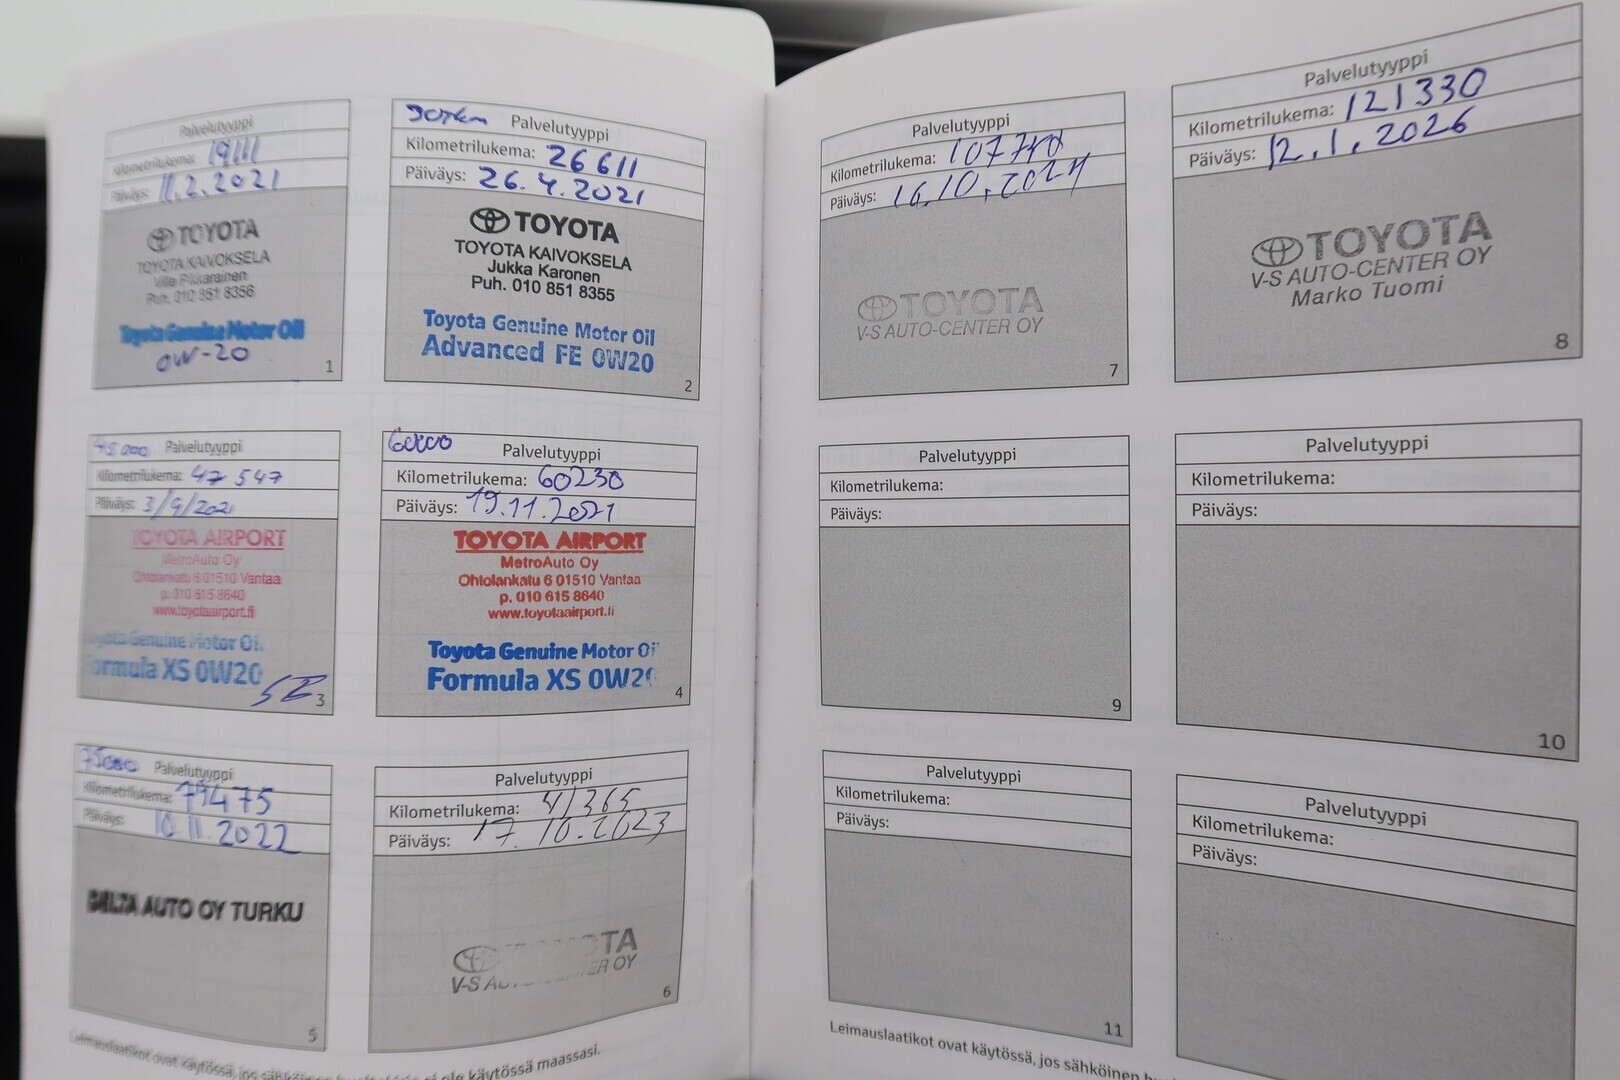 Palvelutyyppi
Kilometrilukema: 19111
Päiväys: 11.2.2021
TOYOTA
TOYOTA KAIVOKSELA
Ville Pikkarainen
Puh. 010 851 8356
Toyota Genuine Motor Oil
0W-20
1
Palvelutyyppi
Kilometrilukema: 26611
Päiväys: 26.4.2021
TOYOTA
TOYOTA KAIVOKSELA
Jukka Karonen
Puh. 010 851 8355
Toyota Genuine Motor Oil
Advanced FE 0W20
2
45000 Palvelutyyppi
Kilometrilukema: 47 547
Päiväys: 3/9/2021
TOYOTA AIRPORT
MetroAuto Oy
Ohtolankatu 6 01510 Vantaa
p. 010 615 8640
www.toyotaairport.fi
Toyota Genuine Motor Oi
Formula XS 0W20
3
60000 Palvelutyyppi
Kilometrilukema: 60230
Päiväys: 19.11.2021
TOYOTA AIRPORT
MetroAuto Oy
Ohtolankatu 6 01510 Vantaa
p. 010 615 8640
www.toyotaairport.fi
Toyota Genuine Motor Oi
Formula XS 0W20
4
75000 Palvelutyyppi
Kilometrilukema: 79475
Päiväys: 10.11.2022
DELTA AUTO OY TURKU
5
Palvelutyyppi
Kilometrilukema: 91365
Päiväys: 17.10.2023
TOYOTA
V-S AU ER OY
6
Leimauslaatikot ovat käytössä, jos sähköinen ei ole käytössä maassasi.
Palvelutyyppi
Kilometrilukema: 107740
Päiväys: 16.10.2024
TOYOTA
V-S AUTO-CENTER OY
7
Palvelutyyppi
Kilometrilukema: 121330
Päiväys: 12.1.2026
TOYOTA
V-S AUTO-CENTER OY
Marko Tuomi
8
Palvelutyyppi
Kilometrilukema:
Päiväys:
9
Palvelutyyppi
Kilometrilukema:
Päiväys:
10
Palvelutyyppi
Kilometrilukema:
Päiväys:
11
Palvelutyyppi
Kilometrilukema:
Päiväys:
Leimauslaatikot ovat käytössä, jos sähköinen